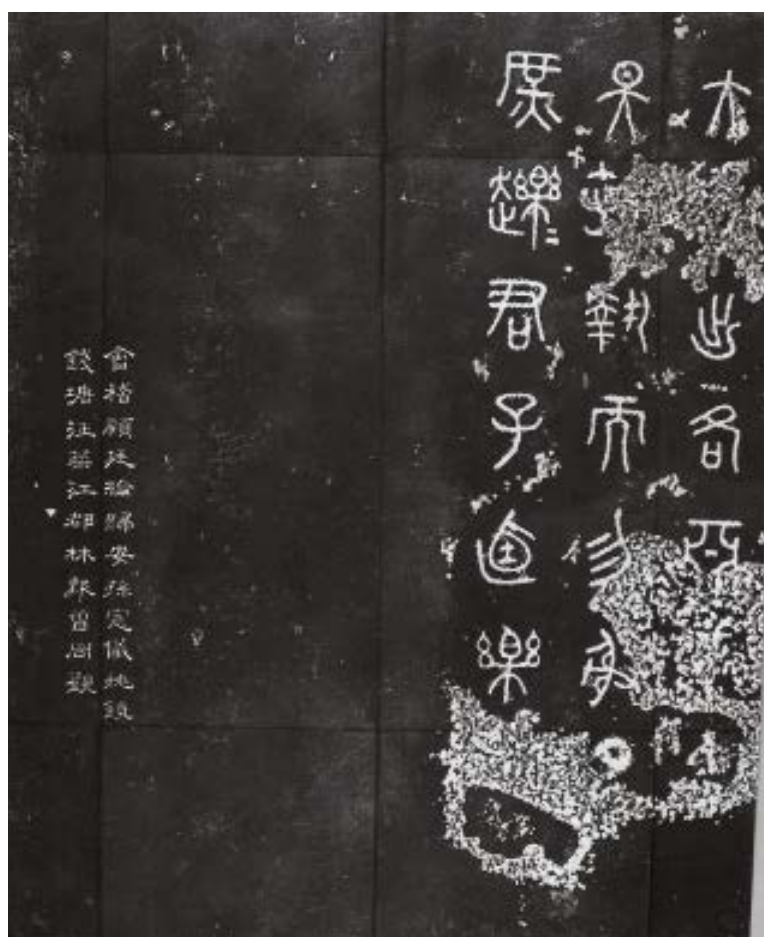 大出各亞
昊執而勿射
庶䟏= 君子逌樂
會稽顧廷綸歸安孫儀姚鎮
錢塘汪江都林報曾同觀